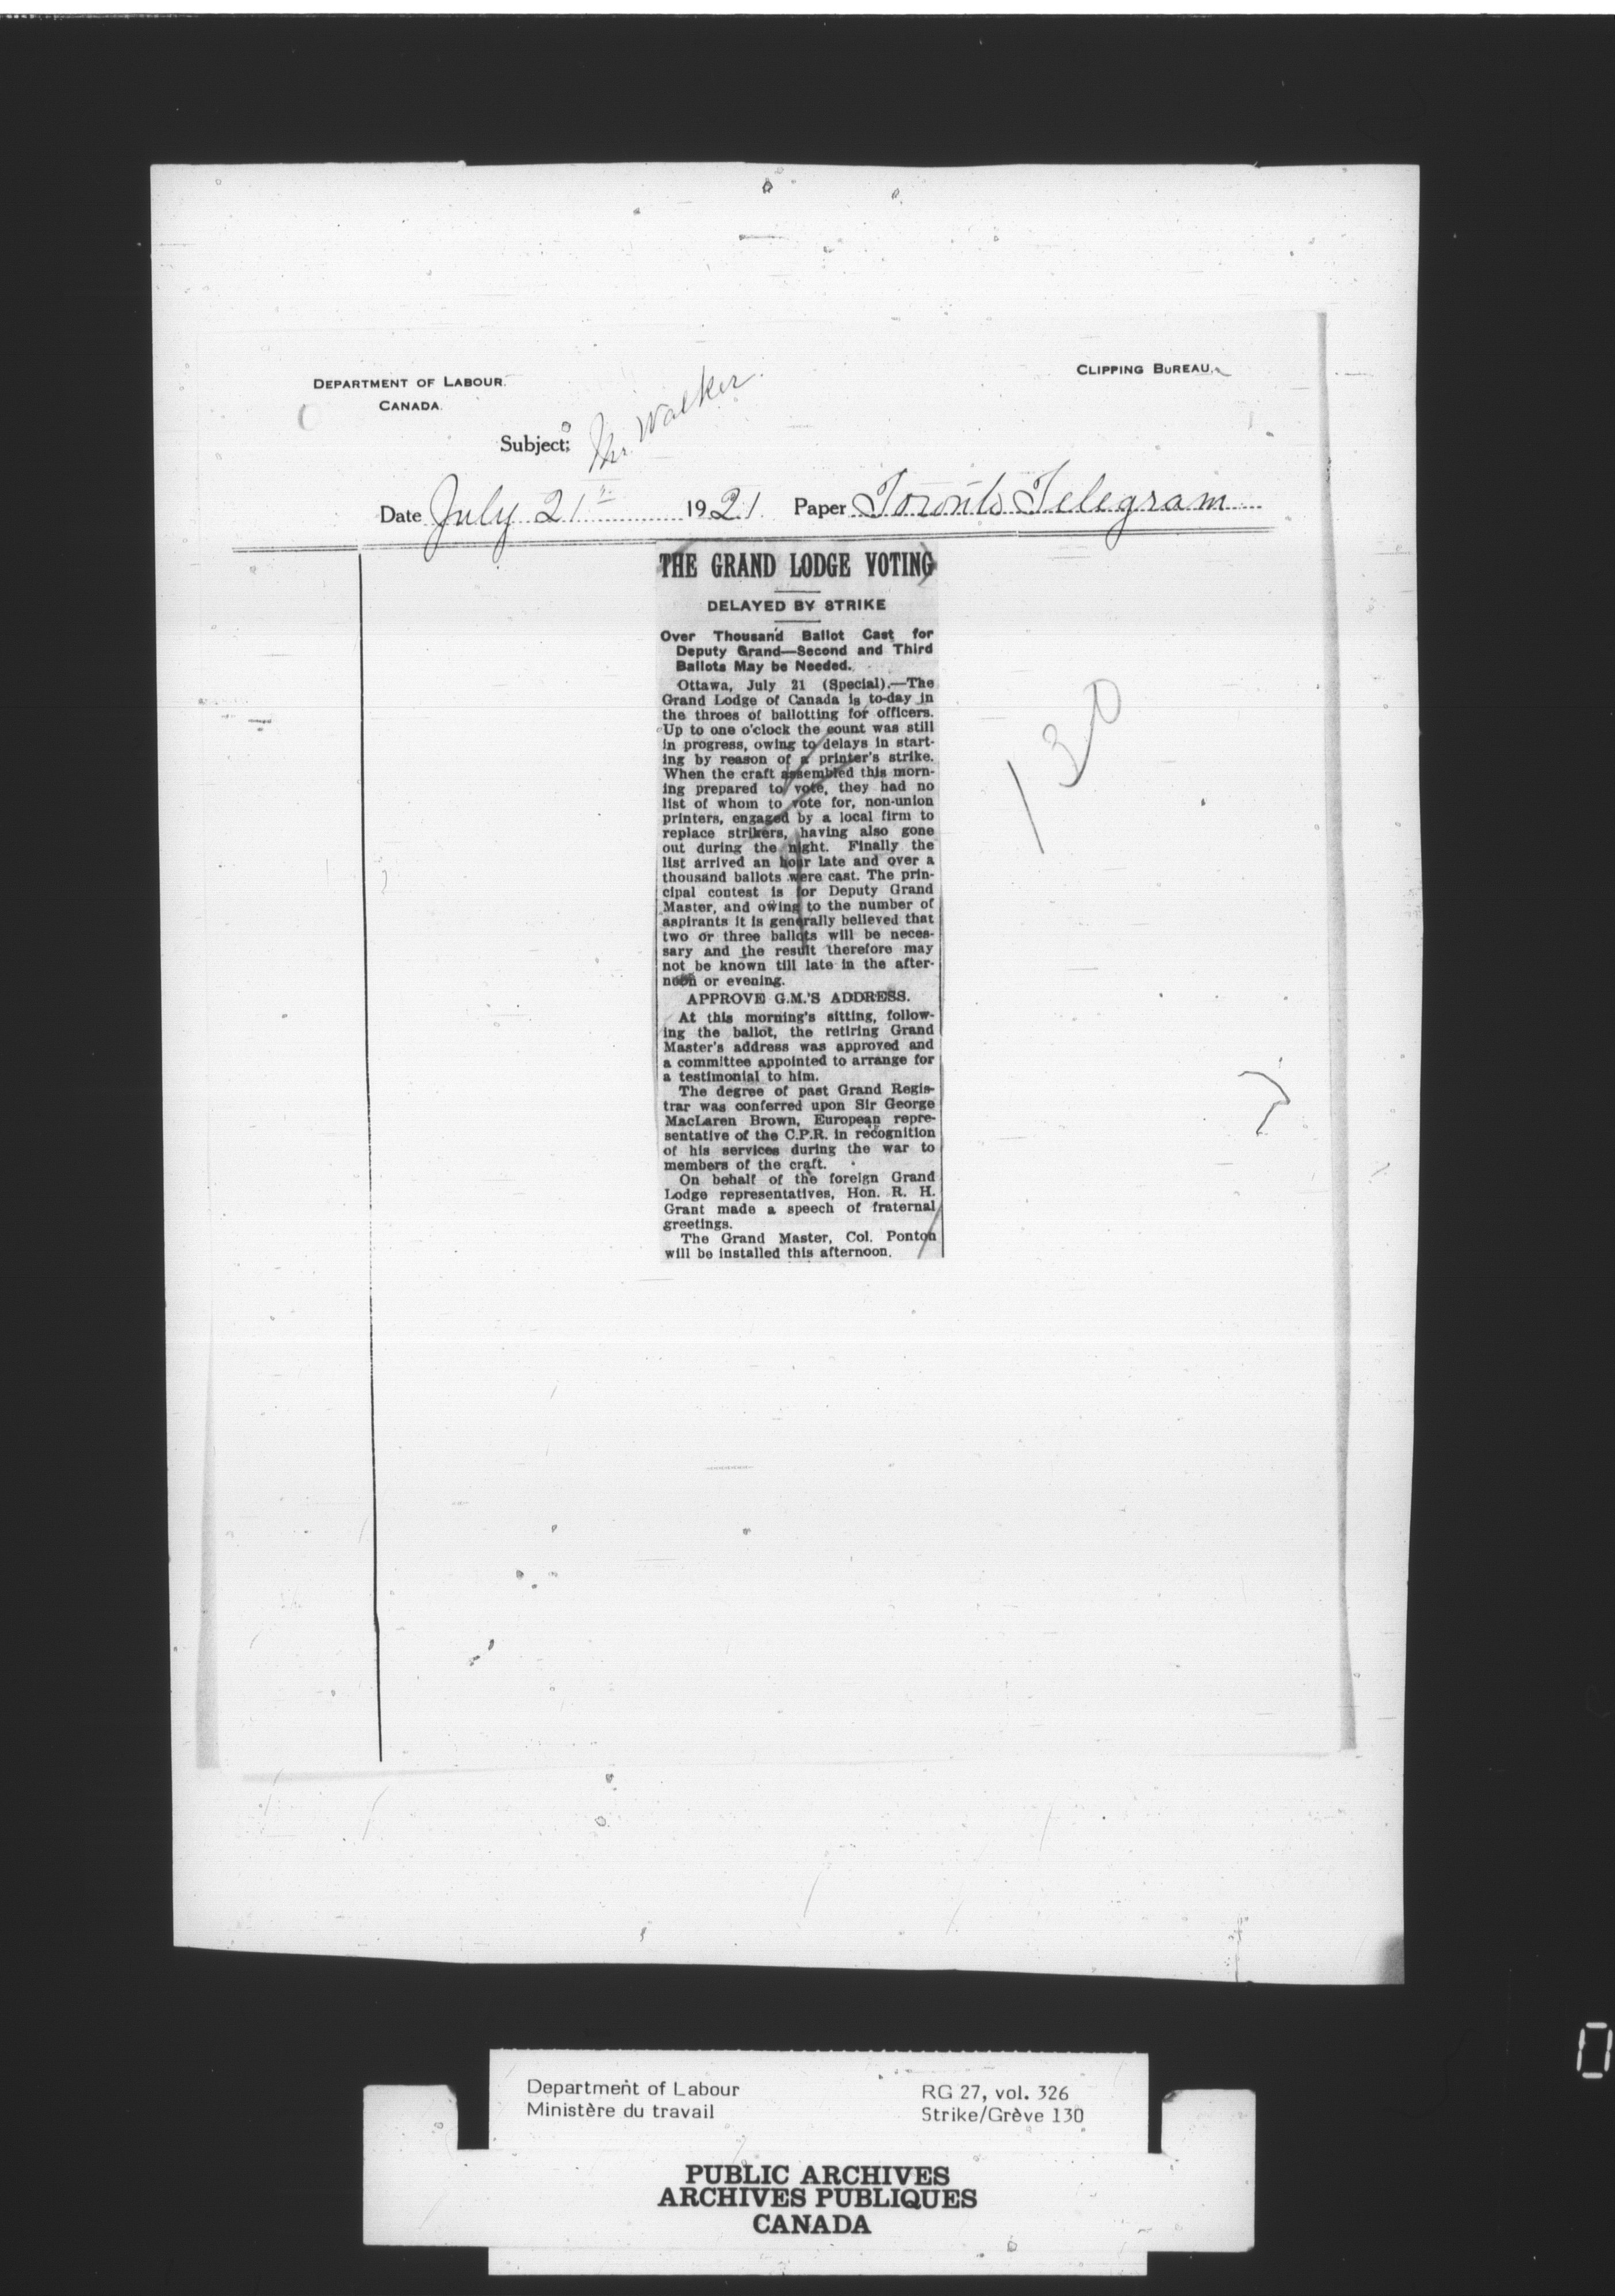 DEPARTMENT OF LABOUR.
CANADA.
CLIPPING BUREAU.
Subject: Mr. Walker.
Date July 21st 1921. Paper Toronto Telegram
THE GRAND LODGE VOTING
DELAYED BY STRIKE
Over Thousand Ballot Cast for
Deputy Grand—Second and Third
Ballots May be Needed.
Ottawa, July 21 (Special).—The
Grand Lodge of Canada is to-day in
the throes of ballotting for officers.
Up to one o'clock the count was still
in progress, owing to delays in start-
ing by reason of a printer's strike.
When the craft assembled this morn-
ing prepared to vote, they had no
list of whom to vote for, non-union
printers, engaged by a local firm to
replace strikers, having also gone
out during the night. Finally the
list arrived an hour late and over a
thousand ballots were cast. The prin-
cipal contest is for Deputy Grand
Master, and owing to the number of
aspirants it is generally believed that
two or three ballots will be neces-
sary and the result therefore may
not be known till late in the after-
noon or evening.
APPROVE G.M.'S ADDRESS.
At this morning's sitting, follow-
ing the ballot, the retiring Grand
Master's address was approved and
a committee appointed to arrange for
a testimonial to him.
The degree of past Grand Regis-
trar was conferred upon Sir George
MacLaren Brown, European repre-
sentative of the C.P.R. in recognition
of his services during the war to
members of the craft.
On behalf of the foreign Grand
Lodge representatives, Hon. R. H.
Grant made a speech of fraternal
greetings.
The Grand Master, Col. Ponton
will be installed this afternoon.
130
Department of Labour
Ministère du travail
RG 27, vol. 326
Strike/Grève 130
PUBLIC ARCHIVES
ARCHIVES PUBLIQUES
CANADA
0